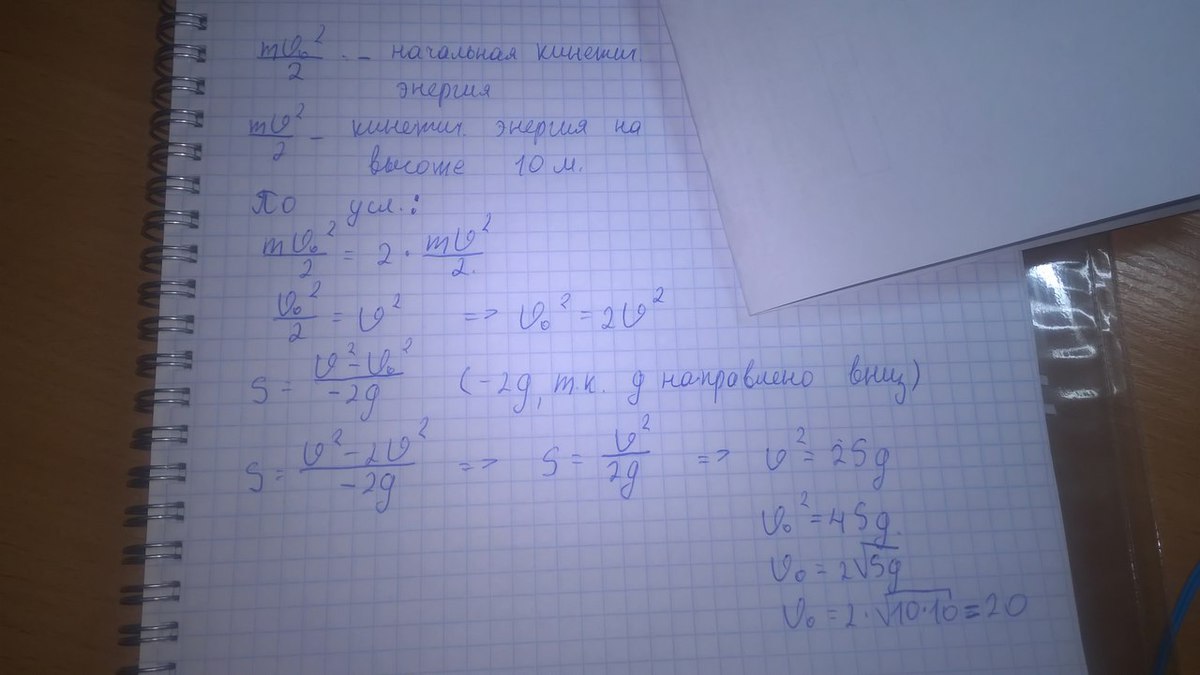 mv₀²/2 - начальная кинетич.
энергия
mv²/2 - кинетич. энергия на
высоте 10 м.
По усл.:
mv₀²/2 = 2 · mv²/2
v₀²/2 = v² => v₀² = 2v²
S = (v² - v₀²)/(-2g) (-2g, т.к. g направлено вниз)
S = (v² - 2v²)/(-2g) => S = v²/2g => v² = 2Sg
v₀² = 4Sg
v₀ = 2√Sg
v₀ = 2·√10·10 = 20